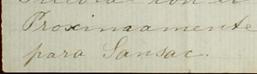 Proximamente
para Sansac.